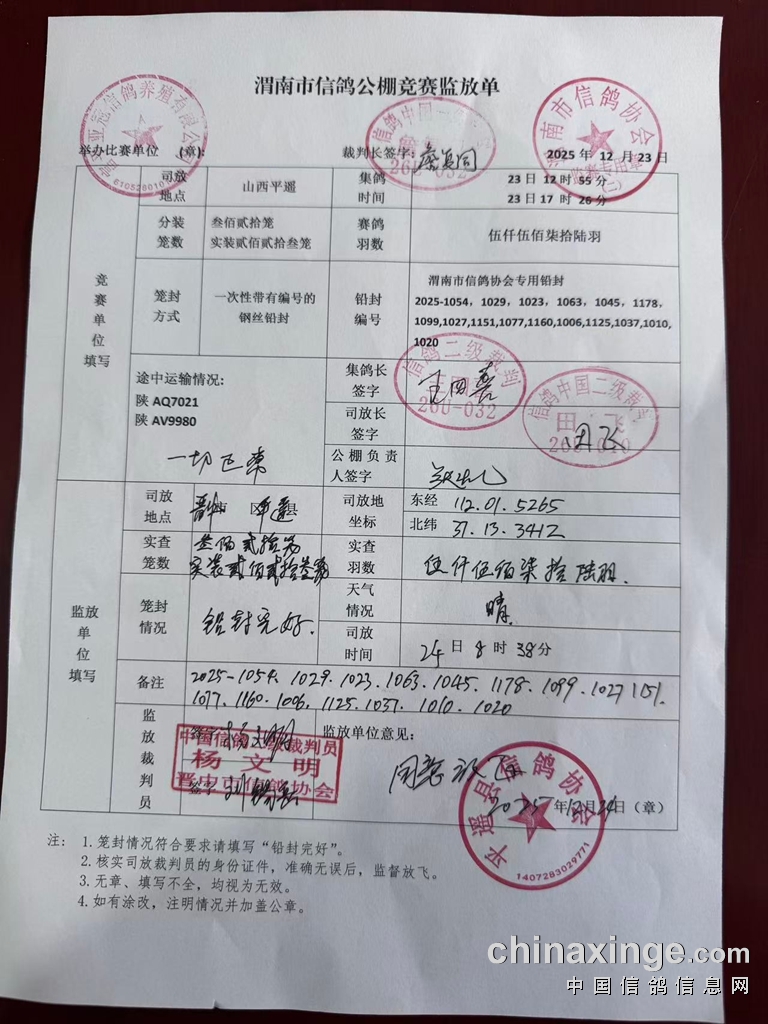 渭南市信鸽公棚竞赛监放单
举办比赛单位 (章):
裁判长签字:
2025 年 12 月 23 日
亚冠信鸽养殖有限公
信鸽中国一级裁
260-032
渭南市信鸽协会
竞赛单位填写
司放地点
山西平遥
集鸽时间
23 日 12 时 55 分
23 日 17 时 26 分
分装笼数
叁佰贰拾笼
实装贰佰贰拾叁笼
赛鸽羽数
伍仟伍佰柒拾陆羽
笼封方式
一次性带有编号的
钢丝铅封
铅封编号
渭南市信鸽协会专用铅封
2025-1054, 1029, 1023, 1063, 1045, 1178,
1099,1027,1151,1077,1160,1006,1125,1037,1010,
1020
途中运输情况:
陕 AQ7021
陕 AV9980
一切正常
集鸽长签字
信鸽二级裁判
260-032
司放长签字
田飞
信鸽中国二级裁判
田 飞
公棚负责人签字
监放单位填写
司放地点
区 县
平遥
司放地坐标
东经 112.01.5265
北纬 37.13.3412
实查笼数
叁佰贰拾笼
实装贰佰贰拾叁笼
实查羽数
伍仟伍佰柒拾陆羽.
笼封情况
铅封完好.
天气情况
晴.
司放时间
24 日 8 时 38 分
备注
2025-1054. 1029. 1023. 1063. 1045. 1178. 1099. 1027 1151.
1077. 1160. 1006. 1125. 1037. 1010. 1020
监放裁判员
杨文明
签字
中国信鸽 裁判员
杨 文 明
晋中市信鸽协会
监放单位意见:
同意放飞
2025 年 12 月 24 日 (章)
平遥县信鸽协会
1407283029771
注: 1. 笼封情况符合要求请填写“铅封完好”。
2. 核实司放裁判员的身份证件，准确无误后，监督放飞。
3. 无章、填写不全，均视为无效。
4. 如有涂改，注明情况并加盖公章。
chinaxinge.com
中国信鸽信息网